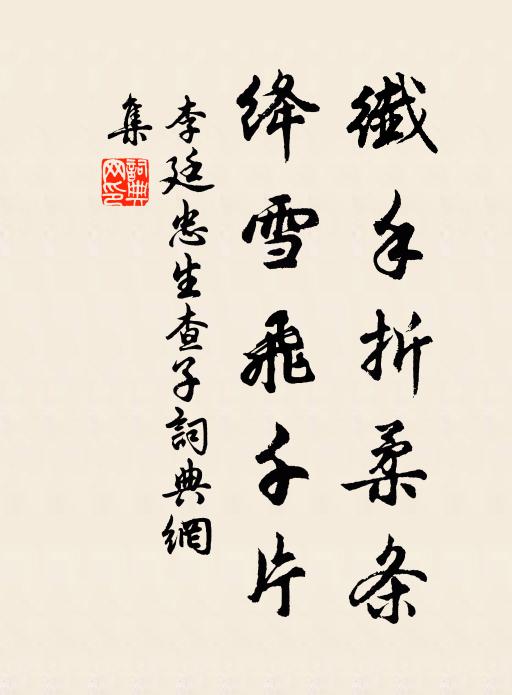 纖手折柔条
絳雪飛千片
李廷忠生查子詞典網
集
詞典網印